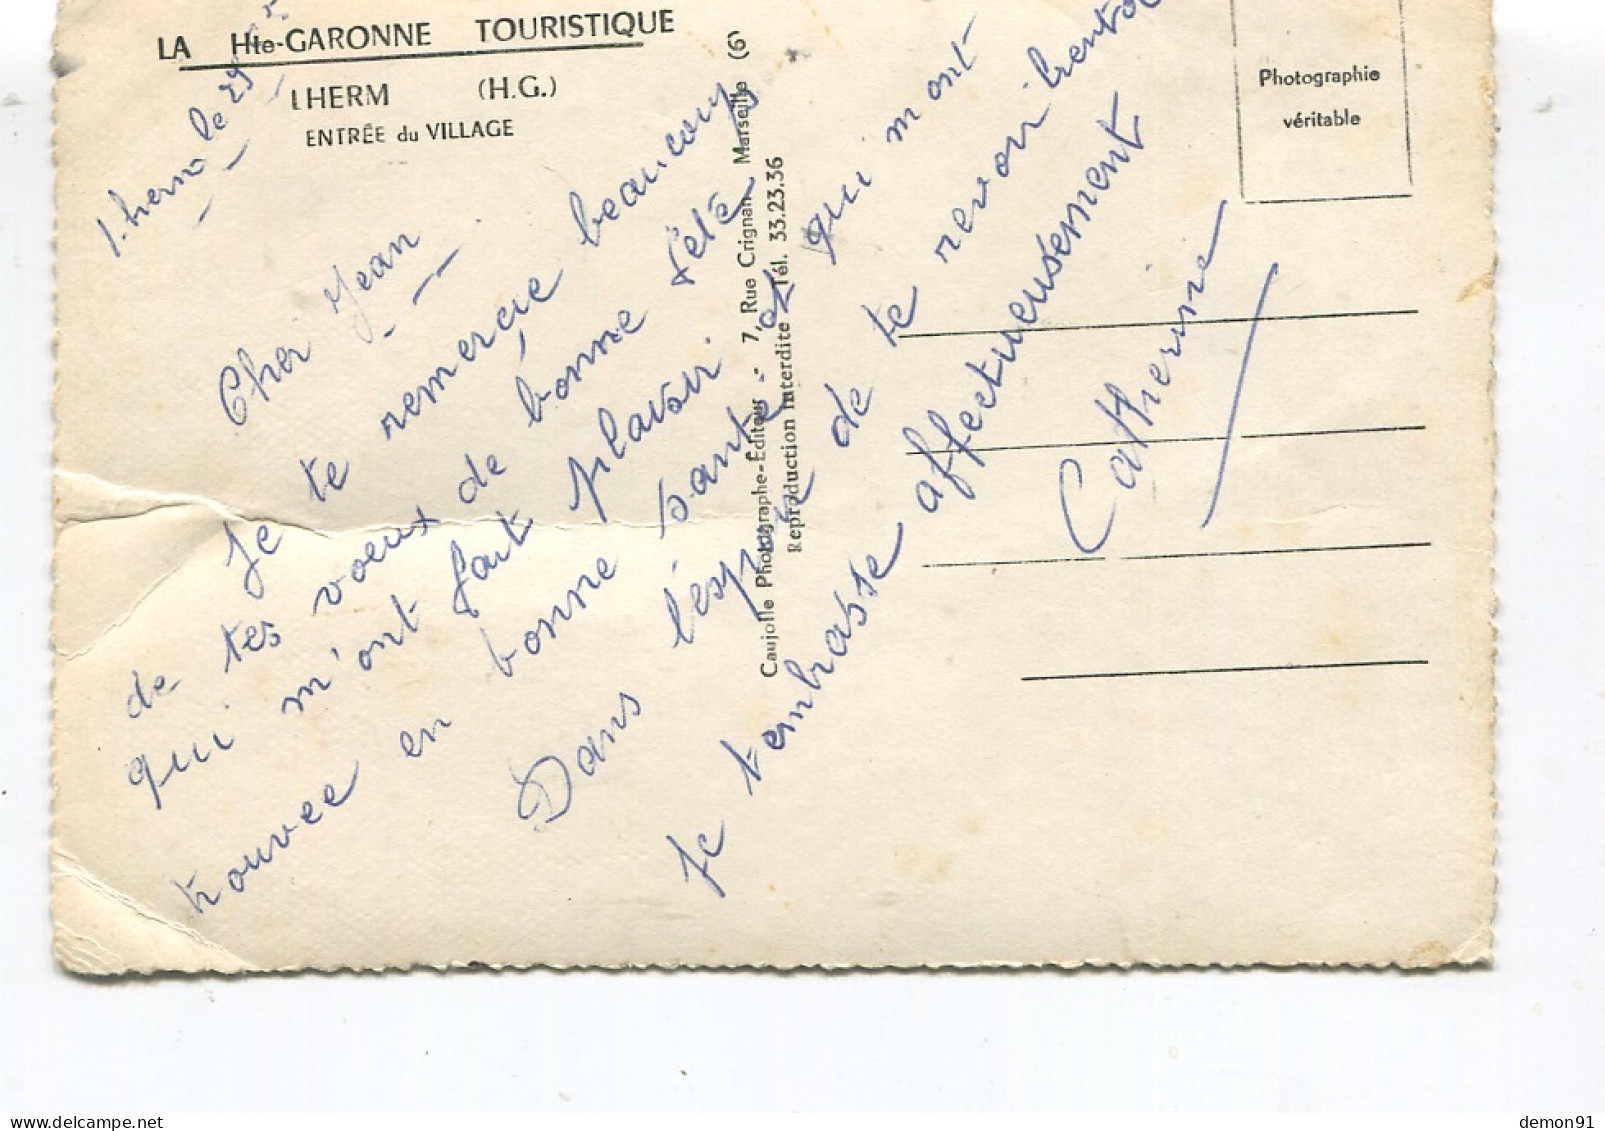 LA Hte-GARONNE TOURISTIQUE
LHERM (H.G.)
ENTRÉE du VILLAGE
Lherm le 29
Cher Jean
Je te remercie beaucoup
de tes voeux de bonne fête
qui m'ont fait plaisir et qui mont
trouvée en bonne santé
Dans l'espoir de te revoir
Je t'embrasse affectueusement
Catherine
Caujolle Photographe-Éditeur - 7, Rue Crignan Marseille (6)
Reproduction interdite Tél. 33.23.36
Photographie
véritable
demon91